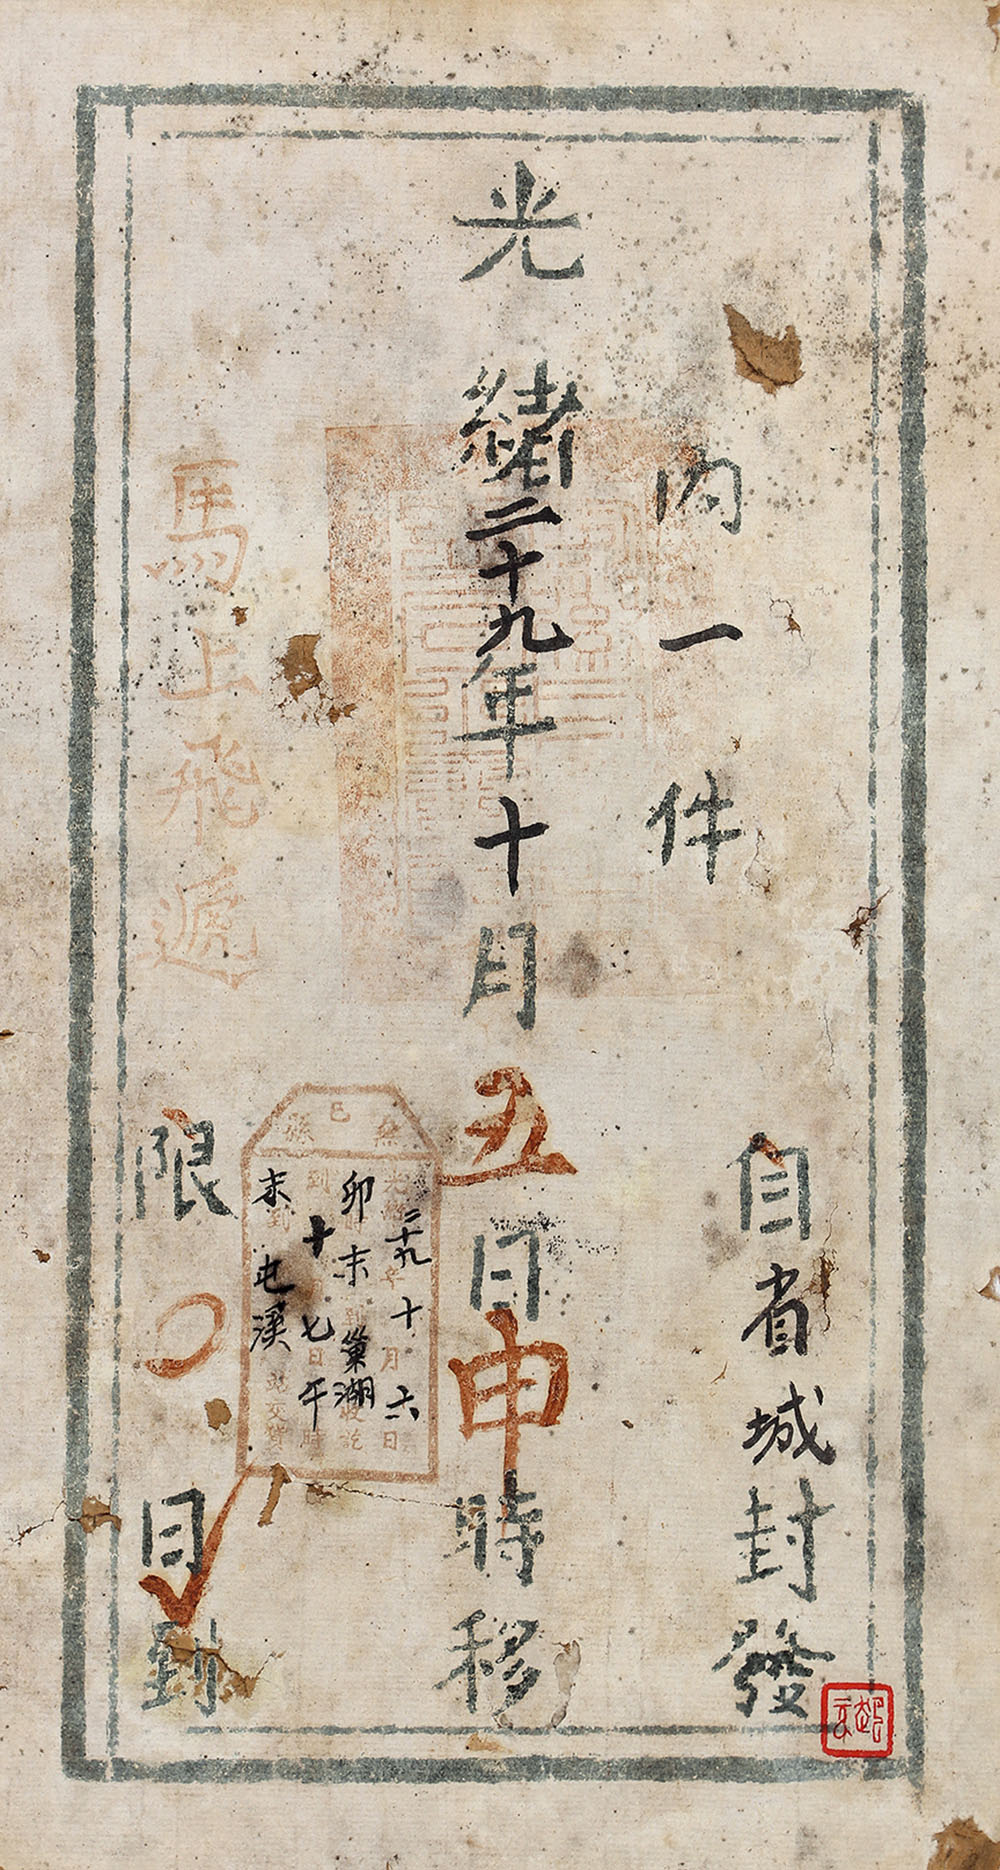 內一件
自省城封發
光緒二十九年十月五日申時移
二十九 十月六日
卯 未 巢湖
到 十七日午時
未到 屯溪
馬上飛遞
限〇日到